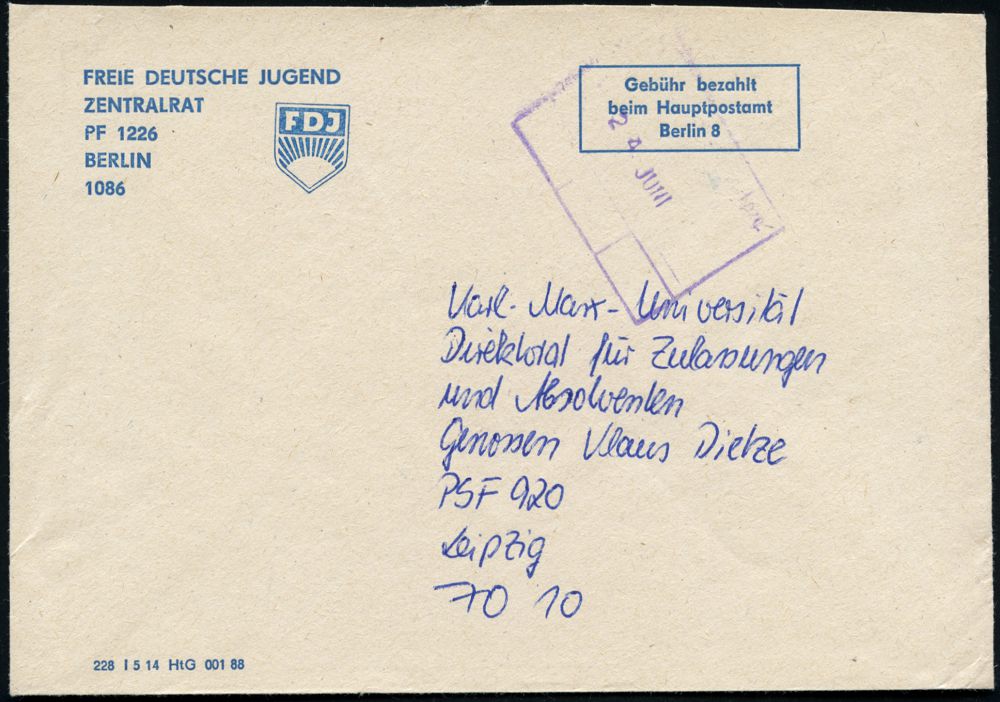 FREIE DEUTSCHE JUGEND
ZENTRALRAT
PF 1226
BERLIN
1086
FDJ
Gebühr bezahlt
beim Hauptpostamt
Berlin 8
24. JUNI
Karl-Marx-Universität
Direktorat für Zulassungen
und Absolventen
Genossen Klaus Dietze
PSF 920
Leipzig
70 10
228 I 5 14 HtG 001 88